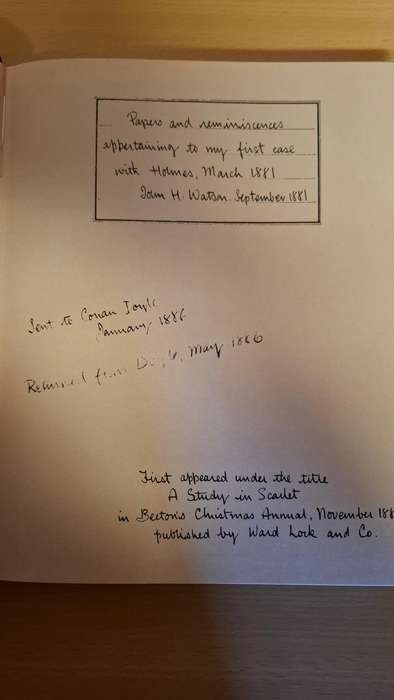 Papers and reminiscences
appertaining to my first case
with Holmes, March 1881
John H. Watson. September 1881
Sent to Conan Doyle
January 1886
Returned from Doyle, May 1886
First appeared under the title
A Study in Scarlet
in Beeton's Christmas Annual, November
published by Ward Lock and Co.